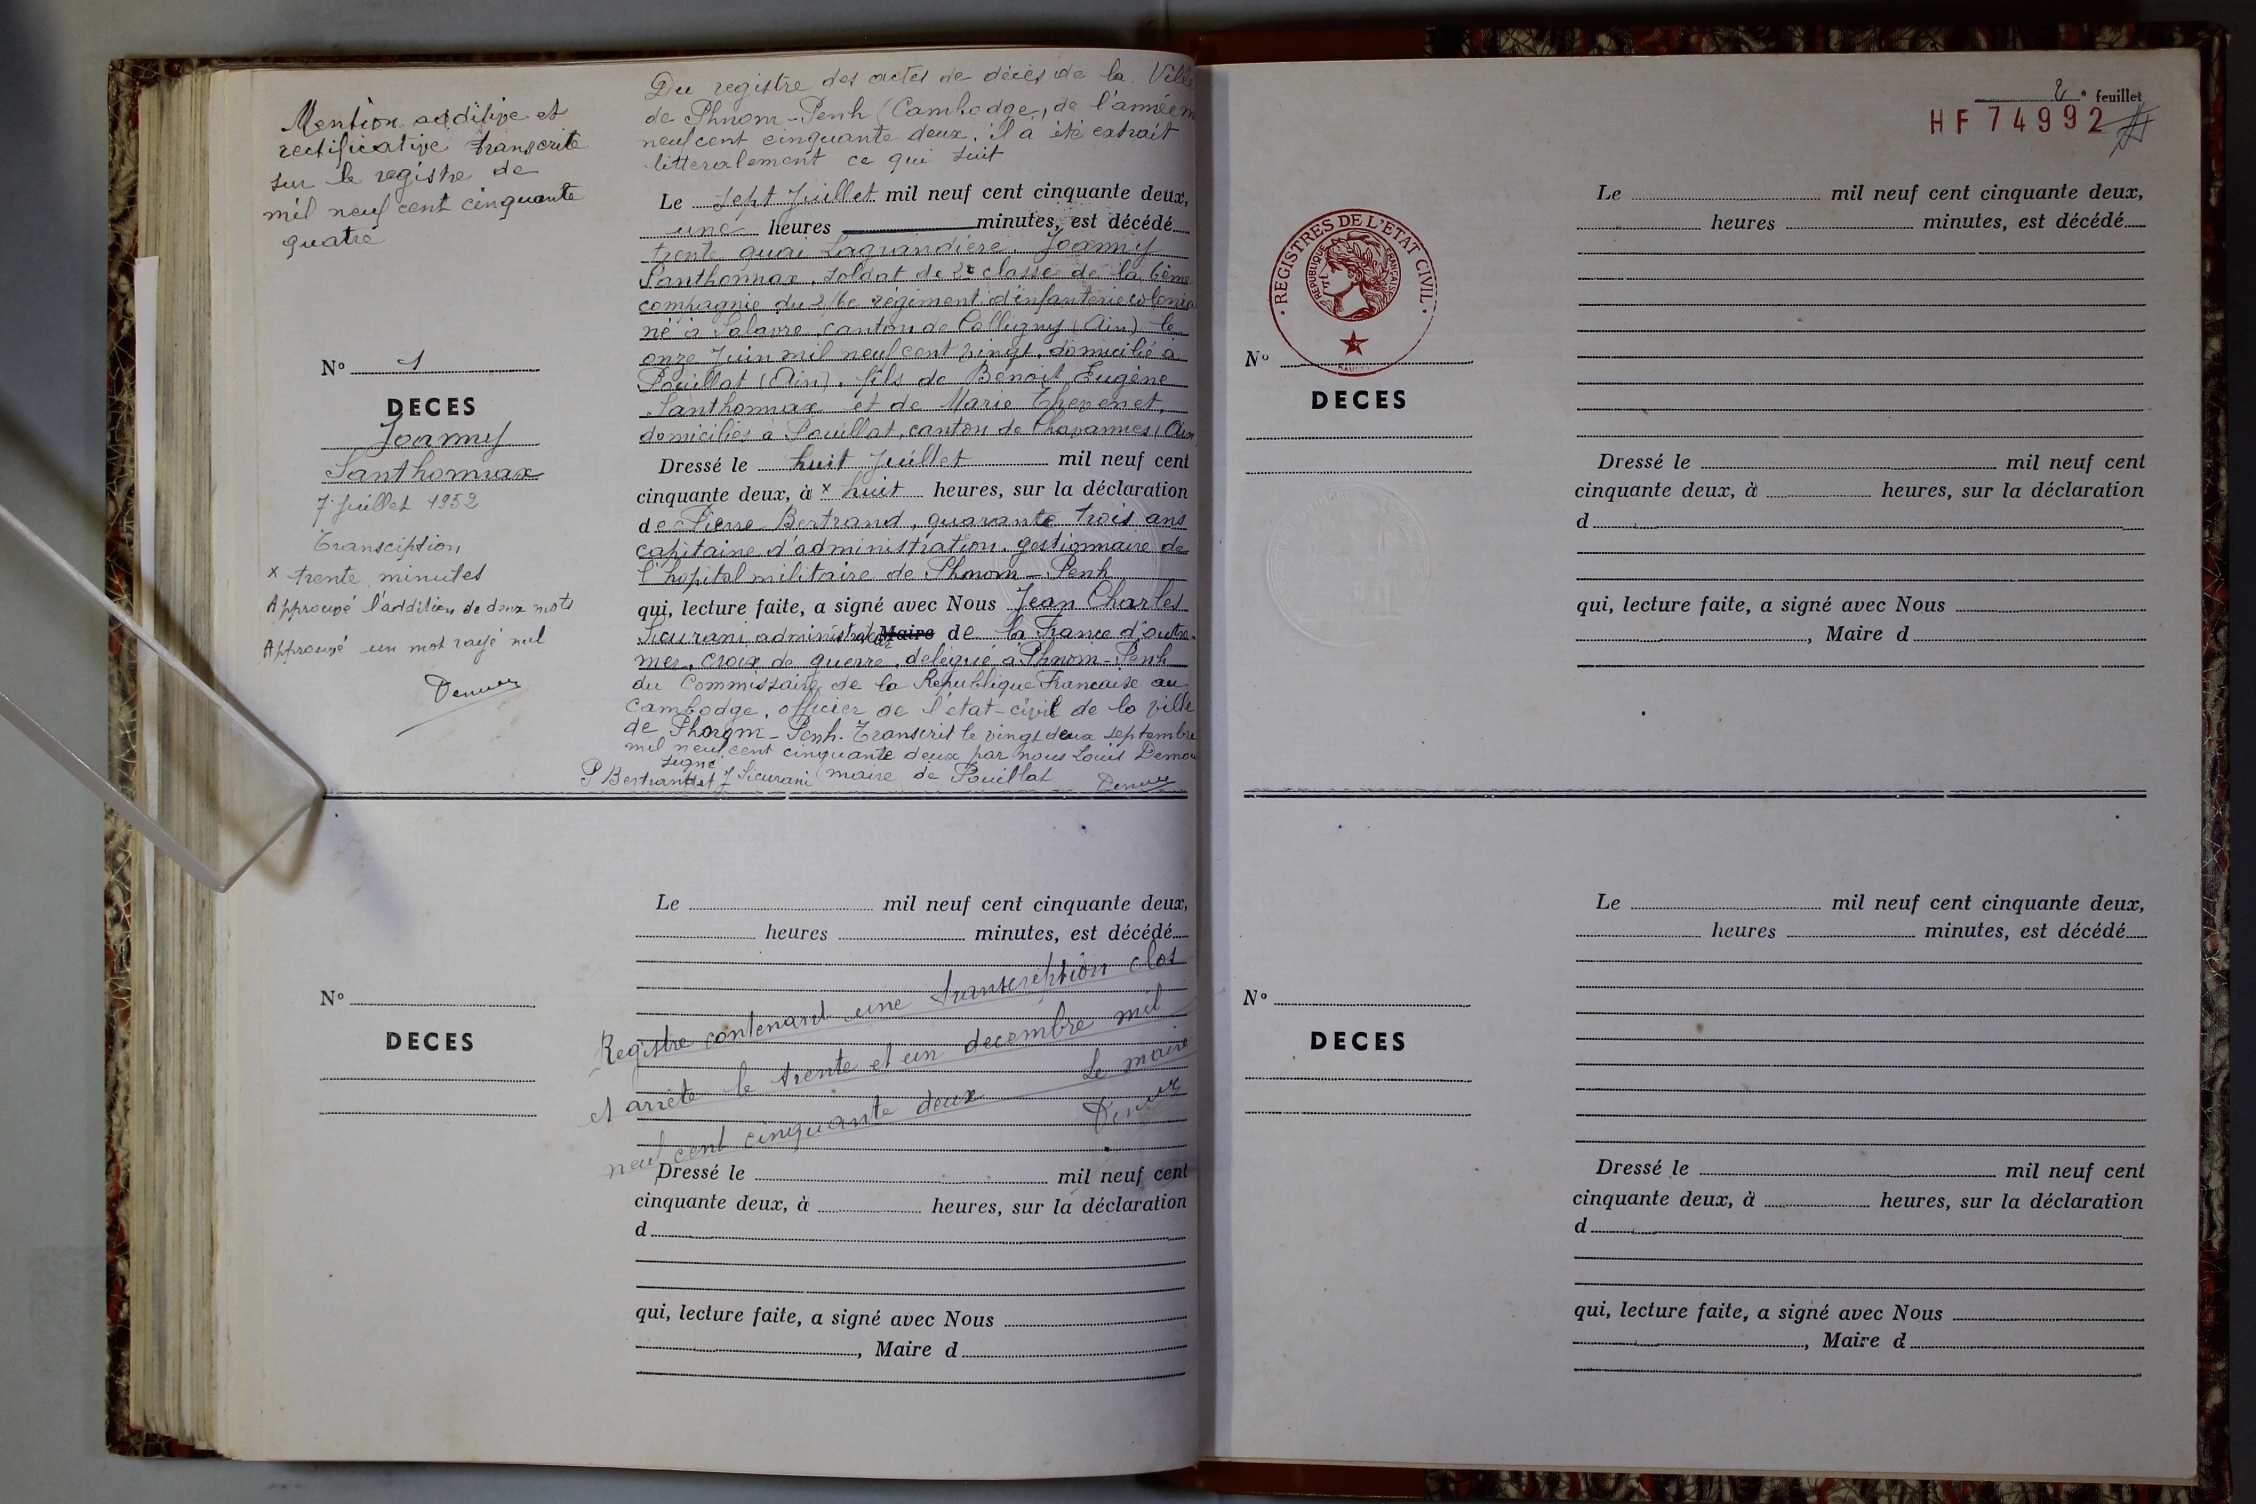 Mention additive et
rectificative transcrite
sur le registre de
mil neuf cent cinquante
quatre
N° 1
DECES
Joanny
Santhonnax
7 Juillet 1952
Transciption
x trente minutes
Approuvé l'addition de deux mots
Approuvé un mot rayé nul
Du registre des actes de décès de la Ville
de Phnom-Penh (Cambodge, de l'année m
neuf cent cinquante deux, il a été extrait
litteralement ce qui suit
Le sept Juillet mil neuf cent cinquante deux,
une heures minutes, est décédé
trente quai Lagrandière, Joanny
Santhonnax, soldat de 2e classe de la 6ème
compagnie du 2/6e régiment d'infanterie colonia
né à Salavre, canton de Colligny (Ain) le
onze Juin mil neuf cent vingt, domicilié à
Pouillat (Ain), fils de Benoit Eugène
Santhonnax et de Marie Thevenet,
domiciliés à Pouillat, canton de Chavannes (Ain
Dressé le huit Juillet mil neuf cent
cinquante deux, à x huit heures, sur la déclaration
de Pierre Bertrand, quarante trois ans
capitaine d'administration, gestionnaire de
l'hopital militaire de Phnom-Penh
qui, lecture faite, a signé avec Nous Jean Charles
Sicurani administrateur Maire de la France d'outre-
mer, croix de guerre, délégué à Phnom-Penh
du Commissaire de la République Francaise au
Cambodge, officier de l'état-civil de la ville
de Phnom-Penh. Transcrit le vingt deux septembre
mil neuf cent cinquante deux par nous Louis
signé
P Bertrand et J Sicurani maire de Pouillat
Le mil neuf cent cinquante deux,
heures minutes, est décédé
N°
DECES
Registre contenant une transcreption clos
et arrête le trente et un decembre mil
neuf cent cinquante deux Le maire
Dressé le mil neuf cent
cinquante deux, à heures, sur la déclaration
d
qui, lecture faite, a signé avec Nous
, Maire d
2e feuillet
HF 74992
REGISTRES DE L'ETAT CIVIL
REPUBLIQUE FRANÇAISE
N°
DECES
Le mil neuf cent cinquante deux,
heures minutes, est décédé
Dressé le mil neuf cent
cinquante deux, à heures, sur la déclaration
d
qui, lecture faite, a signé avec Nous
, Maire d
Le mil neuf cent cinquante deux,
heures minutes, est décédé
N°
DECES
Dressé le mil neuf cent
cinquante deux, à heures, sur la déclaration
d
qui, lecture faite, a signé avec Nous
, Maire d